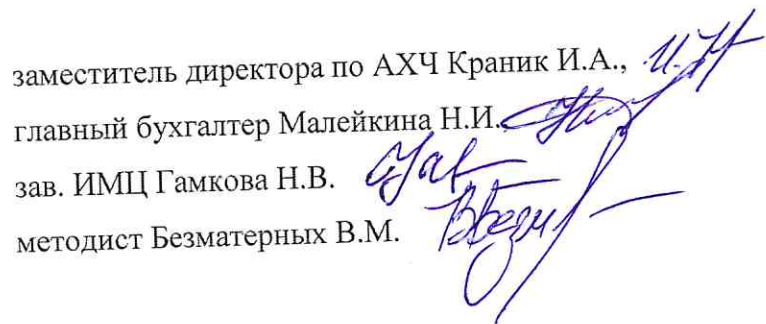 заместитель директора по АХЧ Краник И.А.,
главный бухгалтер Малейкина Н.И.
зав. ИМЦ Гамкова Н.В.
методист Безматерных В.М.